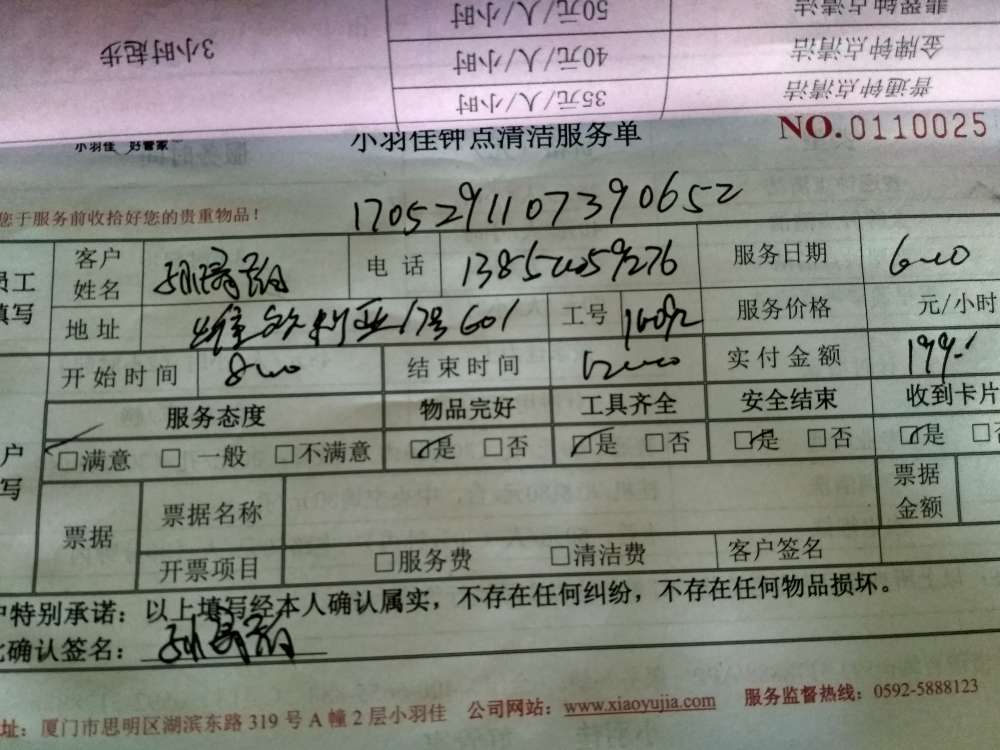 翡翠钟点清洁 50元/人/小时
金牌钟点清洁 40元/人/小时 3小时起步
普通钟点清洁 35元/人/小时
小羽佳 好管家
小羽佳钟点清洁服务单 NO.0110025
您于服务前收拾好您的贵重物品！ 1705291107390652
员工填写 客户姓名 电话 服务日期
地址 维多利亚17号601 工号 服务价格 元/小时
开始时间 结束时间 实付金额 199
服务态度 物品完好 工具齐全 安全结束 收到卡片
□满意 □一般 □不满意 □是 □否 □是 □否 □是 □否 □是
票据 票据名称 票据金额
开票项目 □服务费 □清洁费 客户签名
户特别承诺：以上填写经本人确认属实，不存在任何纠纷，不存在任何物品损坏。
此确认签名：
址：厦门市思明区湖滨东路319号A幢2层小羽佳 公司网站：www.xiaoyujia.com 服务监督热线：0592-5888123